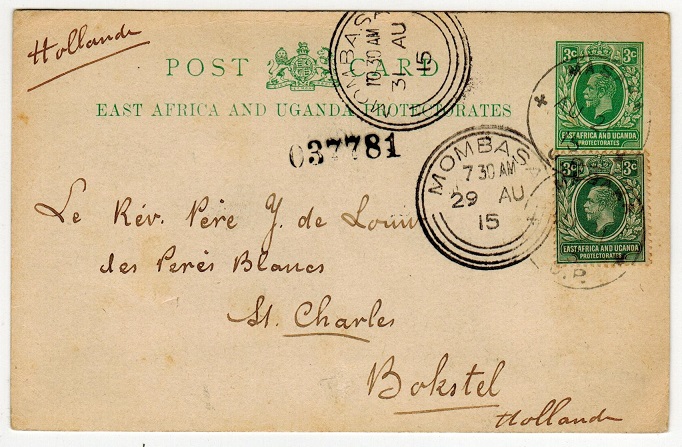 Hollande
POST CARD
EAST AFRICA AND UGANDA PROTECTORATES
MOMBASA
10 30 AM
31 AU
15
3c 3c
EAST AFRICA AND UGANDA
PROTECTORATES
037781
MOMBASA
7 30 AM
29 AU
15
3c
EAST AFRICA AND UGANDA
PROTECTORATES
Le Rév. Père J. de
des Perés Blancs
St. Charles
Bokstel
Hollande